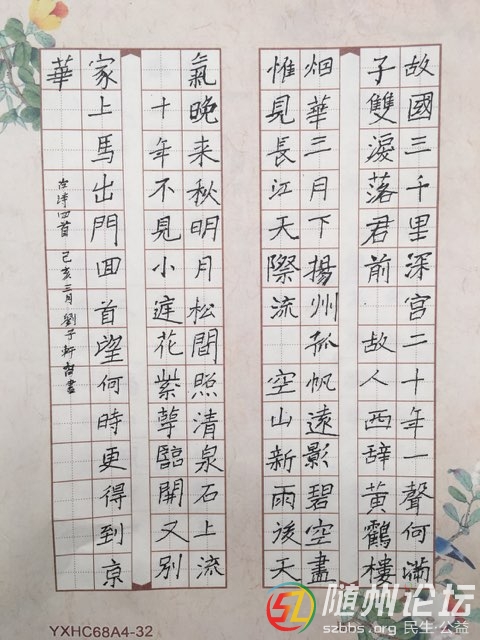 故國三千里深宫二十年一聲何滿
子雙淚落君前 故人西辞黄鶴樓
烟華三月下揚州孤帆遠影碧空盡
惟見長江天際流 空山新雨後天
氣晚来秋明月松間照清泉石上流
十年不見小庭花紫萼臨開又别
家上馬出門回首望何時更得到京
華
古诗四首 己亥三月 劉子軒
YXHC68A4-32
随州论坛
szbbs.org 民生·公益